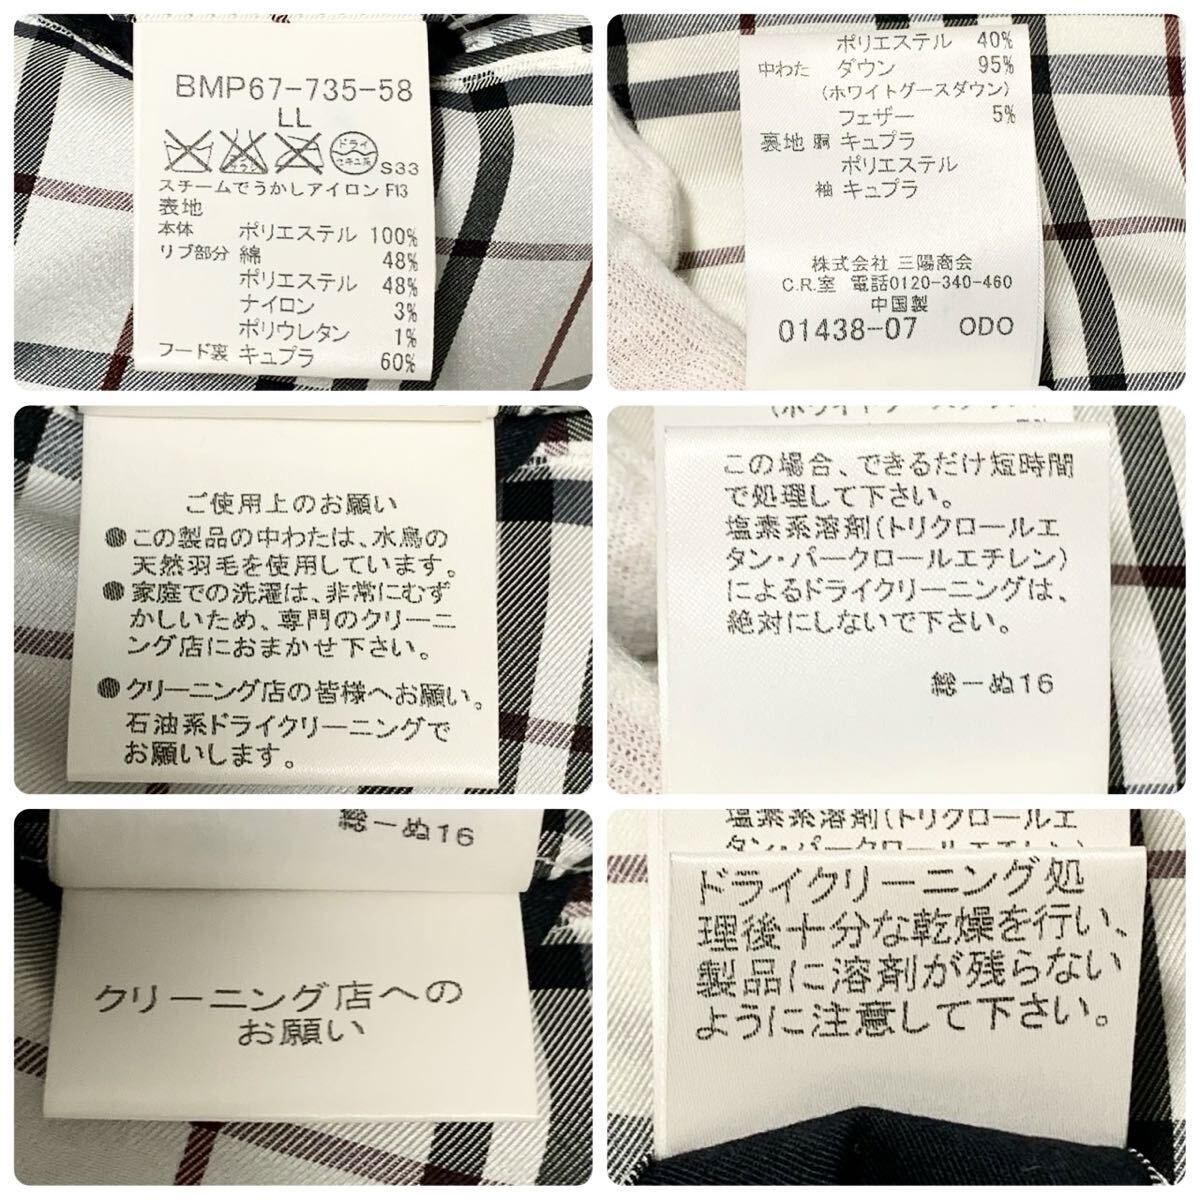 BMP67-735-58
LL
ドライ
セキユ系
S33
スチームでうかしアイロン F13
表地
本体 ポリエステル 100%
リブ部分 綿 48%
ポリエステル 48%
ナイロン 3%
ポリウレタン 1%
フード裏 キュプラ 60%
ポリエステル 40%
中わた ダウン 95%
(ホワイトグースダウン)
フェザー 5%
裏地 胴 キュプラ
ポリエステル
袖 キュプラ
株式会社 三陽商会
C.R.室 電話0120-340-460
中国製
01438-07 ODO
ご使用上のお願い
●この製品の中わたは、水鳥の
天然羽毛を使用しています。
●家庭での洗濯は、非常にむず
かしいため、専門のクリーニ
ング店におまかせ下さい。
●クリーニング店の皆様へお願い。
石油系ドライクリーニングで
お願いします。
(ホワイトグースダウン)
この場合、できるだけ短時間
で処理して下さい。
塩素系溶剤(トリクロールエ
タン・パークロールエチレン)
によるドライクリーニングは、
絶対にしないで下さい。
総ーぬ16
総ーぬ16
クリーニング店への
お願い
塩素系溶剤(トリクロールエ
タン・パークロールエチレン)
ドライクリーニング処
理後十分な乾燥を行い、
製品に溶剤が残らない
ように注意して下さい。